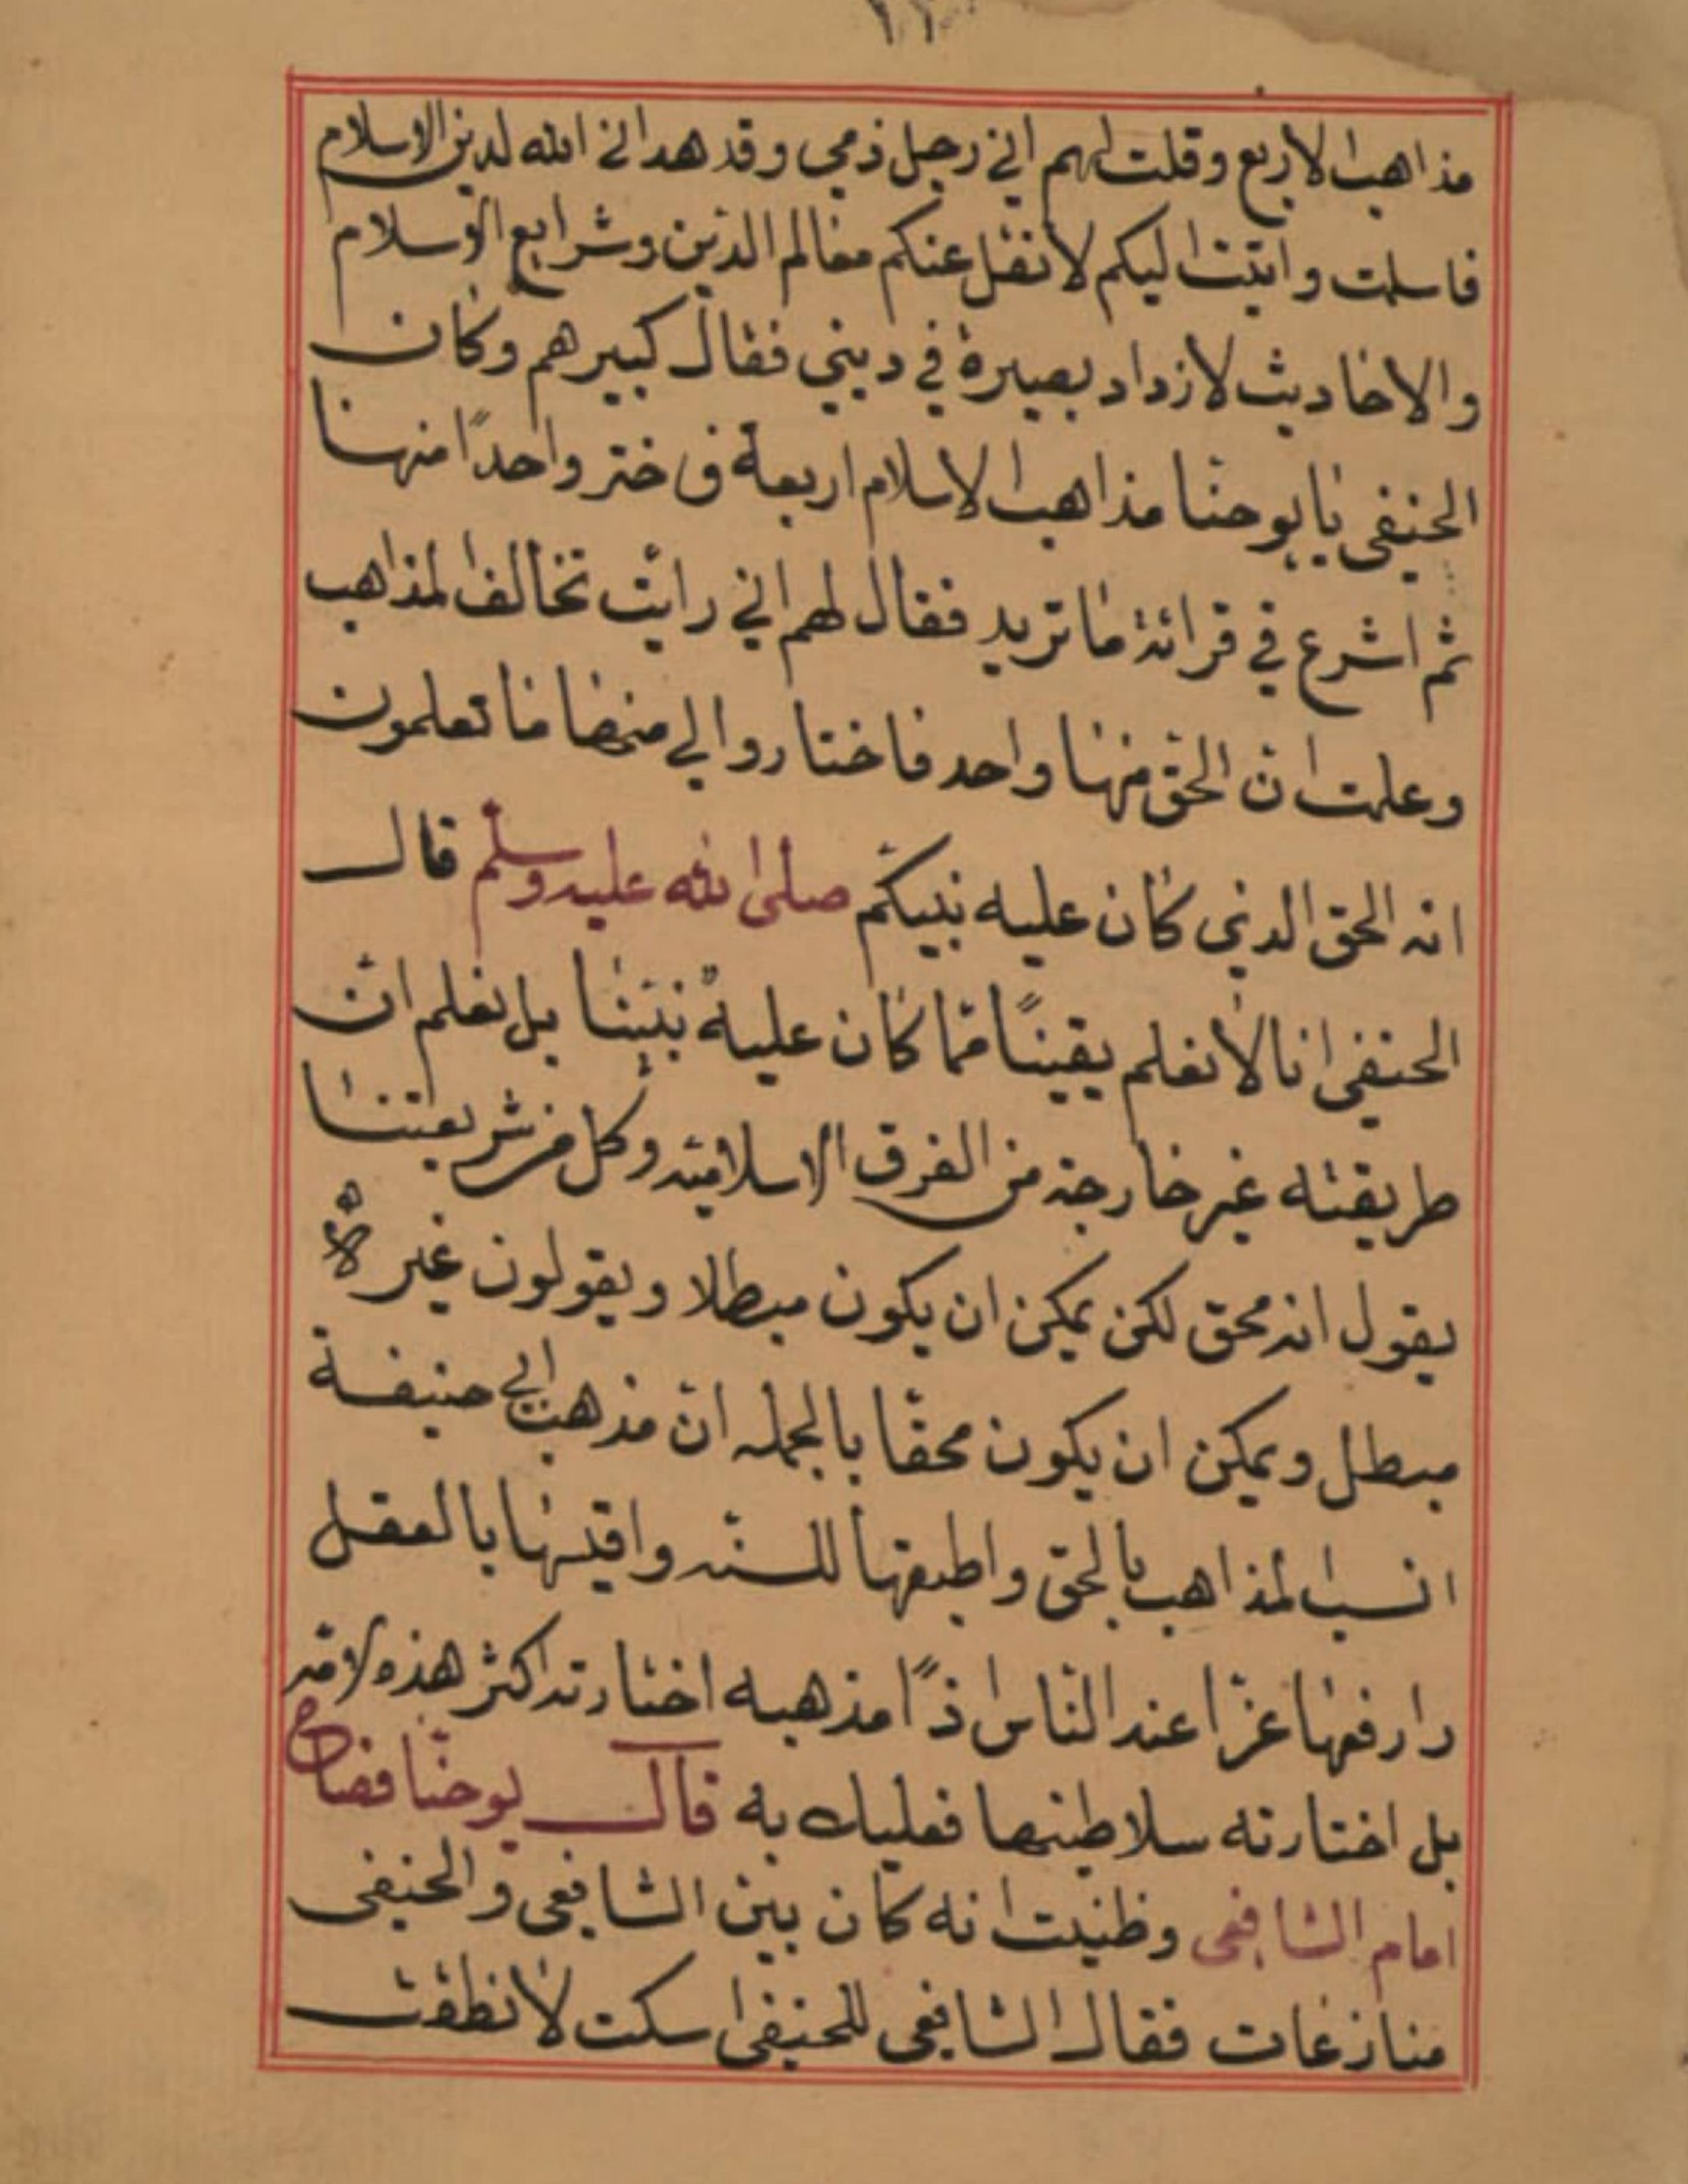 مذاهب الاربع وقلت لهم اني رجل ذمي وقد هداني الله لدين الاسلام
فاسلمت واتيت اليكم لانقل عنكم معالم الدين وشرايع الاسلام
والاحاديث لازداد بصيرة في ديني فقال كبيرهم وكان
الحنيفى يا يوحنا مذاهب الاسلام اربعة فى ختر واحدًا منها
ثم اشرع في قرائة ما تريد فقال لهم اني رايت تخالف المذاهب
وعلمت ان الحق منها واحد فاختاروا لي منها ما تعلمون
انه الحق الذي كان عليه نبيكم صلى الله عليه وسلم قال
الحنيفى انا لا نعلم يقينًا مما كان عليه نبينا بل نعلم ان
طريقته غير خارجة من الفرق الاسلاميه وكل من شريعتنا
يقول انه محق لكن يمكن ان يكون مبطلا ويقولون غيره لا
مبطل ويمكن ان يكون محقا بالجمله ان مذهب ابي حنيفة
انسب المذاهب بالحق واطبقها للسنه واقيسها بالعقل
وارفعها عزا عند الناس مذهبه اختارته اكثر هذه الامه
بل اختارته سلاطينها فعليك به قال يوحنا فصاح
امام الشافعى وظنيت انه كان بين الشافعى والحنيفى
منازعات فقال الشافعى للحنيفى اسكت لا نطقت